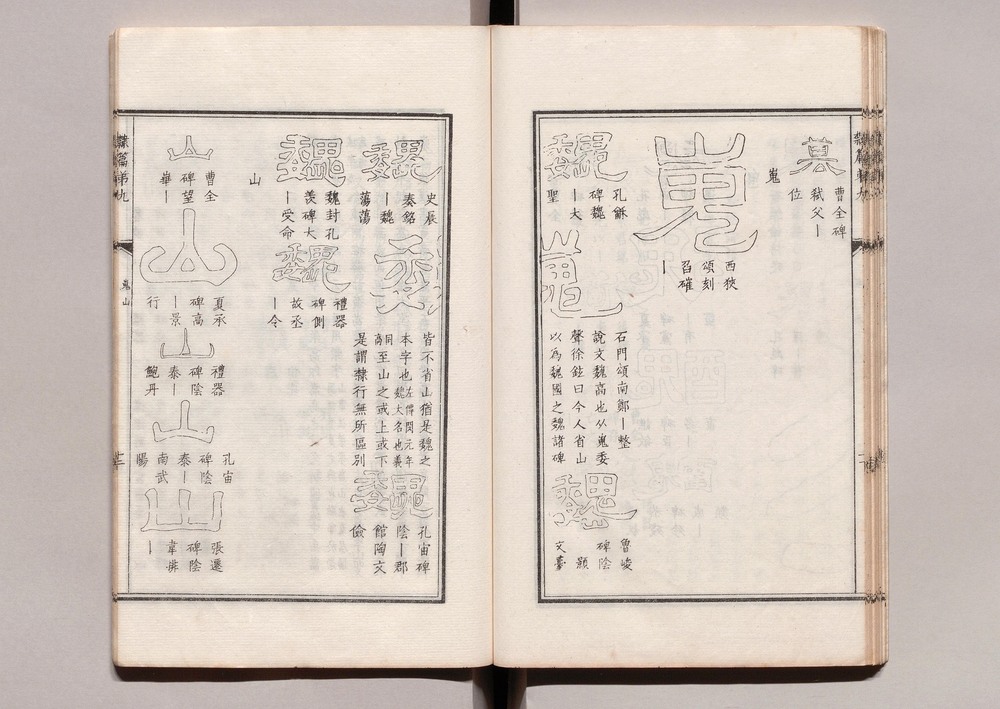 曹全碑
弑父｜
位
嵬
嵬
西狹
頌刻
召確
｜
魏
孔龢
碑魏
｜大
聖
巍
石門頌南鄭｜整
說文巍高也从嵬委
聲徐鉉曰今人省山
以為魏國之魏諸碑
魏
魯峻
碑陰
文臺
皆不省山猶是魏之
本字也左傳閔元年
魏大名也義
同至山之或上或下
是謂隸行無所區別
魏
史晨
奏銘
｜魏
蕩蕩
魏
孔宙碑
陰｜郡
館陶文
儉
魏
魏封孔
羨碑大
｜受命
魏
禮器
碑側
故丞
｜令
山
山
曹全
碑望
華｜
山
夏承
碑高
｜景
行
山
禮器
碑陰
泰｜
鮑丹
山
孔宙
碑陰
泰｜
南武
陽
山
張遷
碑陰
韋排
｜
隸篇第九
嵬山